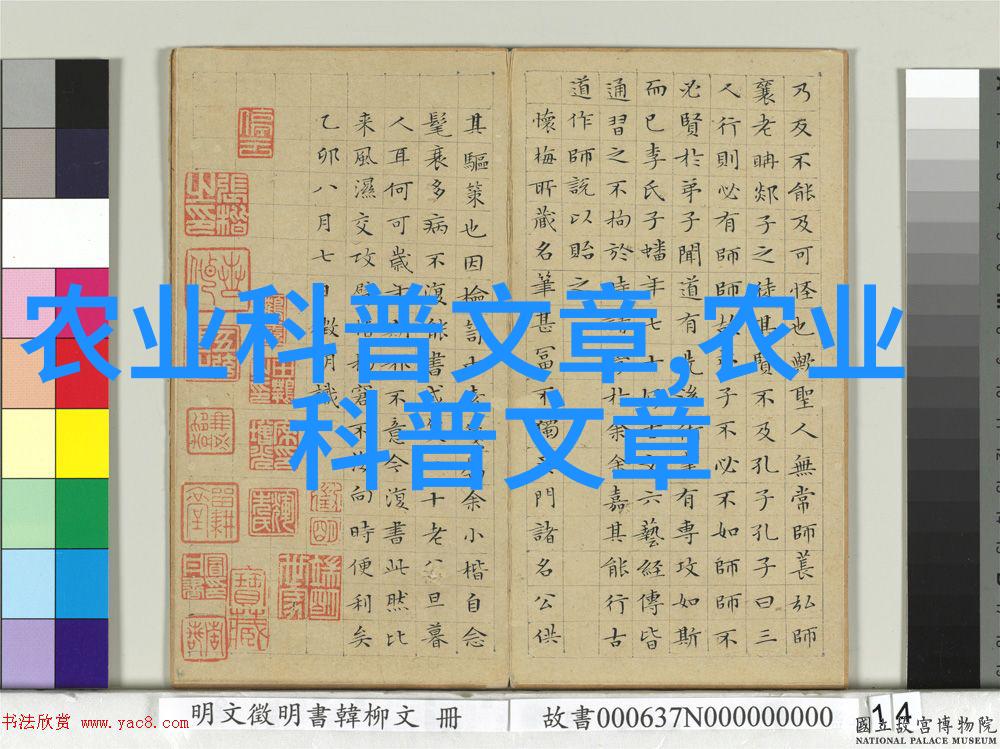 农业科普文章,农业
科普文章
乃反不能及可怪也歟聖人無常師萇弘師
襄老聃郯子之徒其賢不及孔子孔子曰三
人行則必有師師故子不必不如師師不
必賢於弟子聞道有先後有專攻如斯
而已李氏子蟠年七六藝經傳皆
通習之不拘於時余余嘉其能行古
道作師說以貽之
懷梅所藏名筆甚富不獨門諸名公供
其驅策也因檢討余小楷自念
髦衰多病不復能書十老公旦暮
人耳何可歲不意今復書此然比
来風濕交攻窘不向時便利矣
乙卯八月七日徵明識
明文徵明書韓柳文 冊
故書000637N000000000
14
國立故宮博物院
NATIONAL PALACE MUSEUM
书法欣赏 www.yac8.com